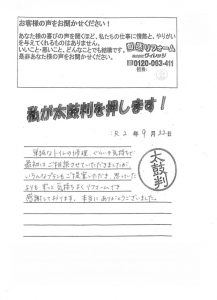 お客様の声をお聞かせください！
あなた様の喜びの声を聞くほど、私たちの仕事に情熱と、やりがい
を与えてくれるものはありません。
いいこと・悪いこと、どんなことでも結構です。
是非あなた様の声をお聞かせください。
リフォーム
0120-093-411
担当：
私が太鼓判を押します！
R2年9月22日
太鼓判
単純なトイレの修理ぐらいの気持ちで
最初はご相談させていただきましたが、
いろんなプランもご提案いただき、思っていた
よりもずっと気持ちよくリフォームでき
感謝しております。本当にありがとうございました。